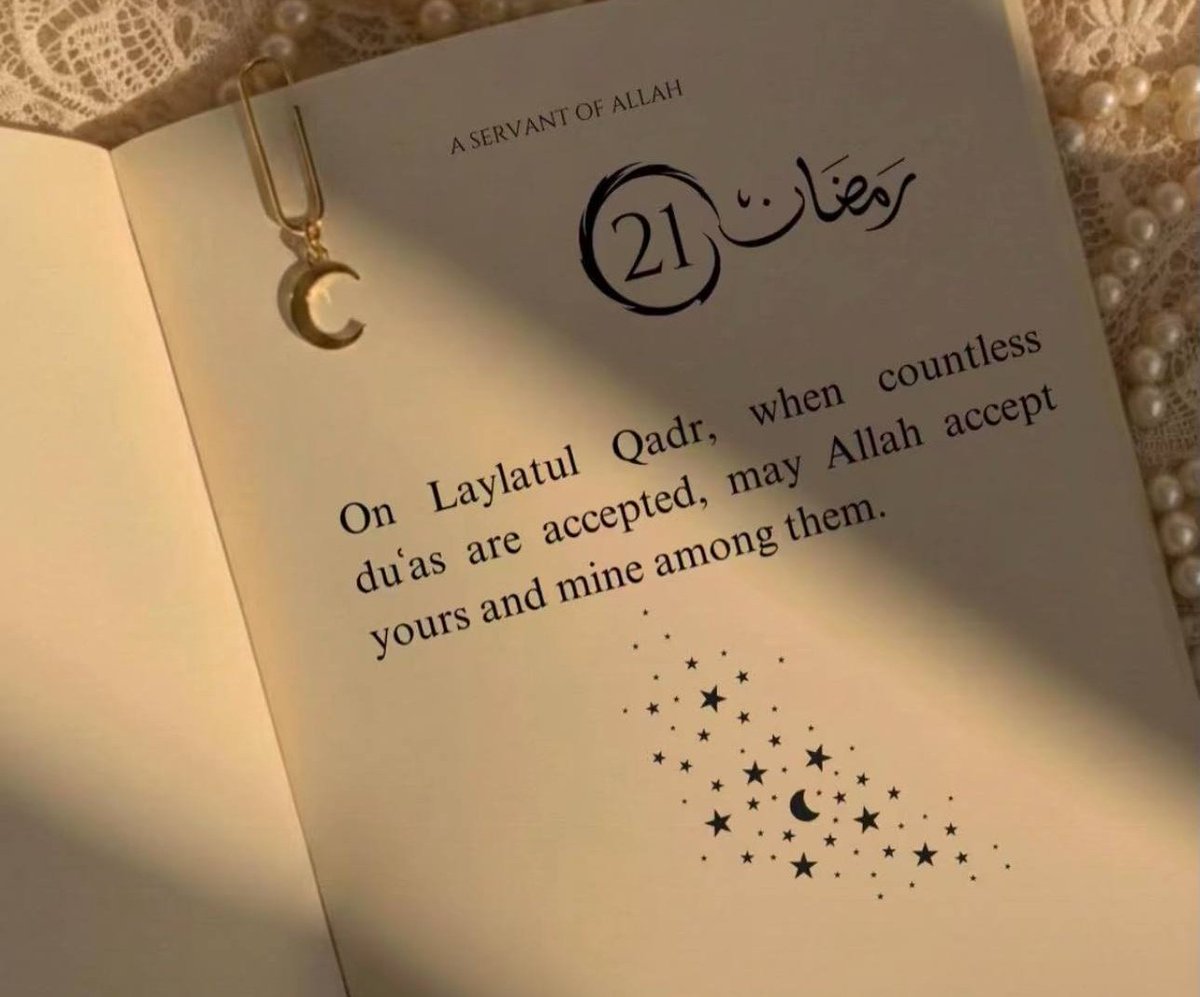 A SERVANT OF ALLAH
21 رَمَضَان
On Laylatul Qadr, when countless
du‘as are accepted, may Allah accept
yours and mine among them.